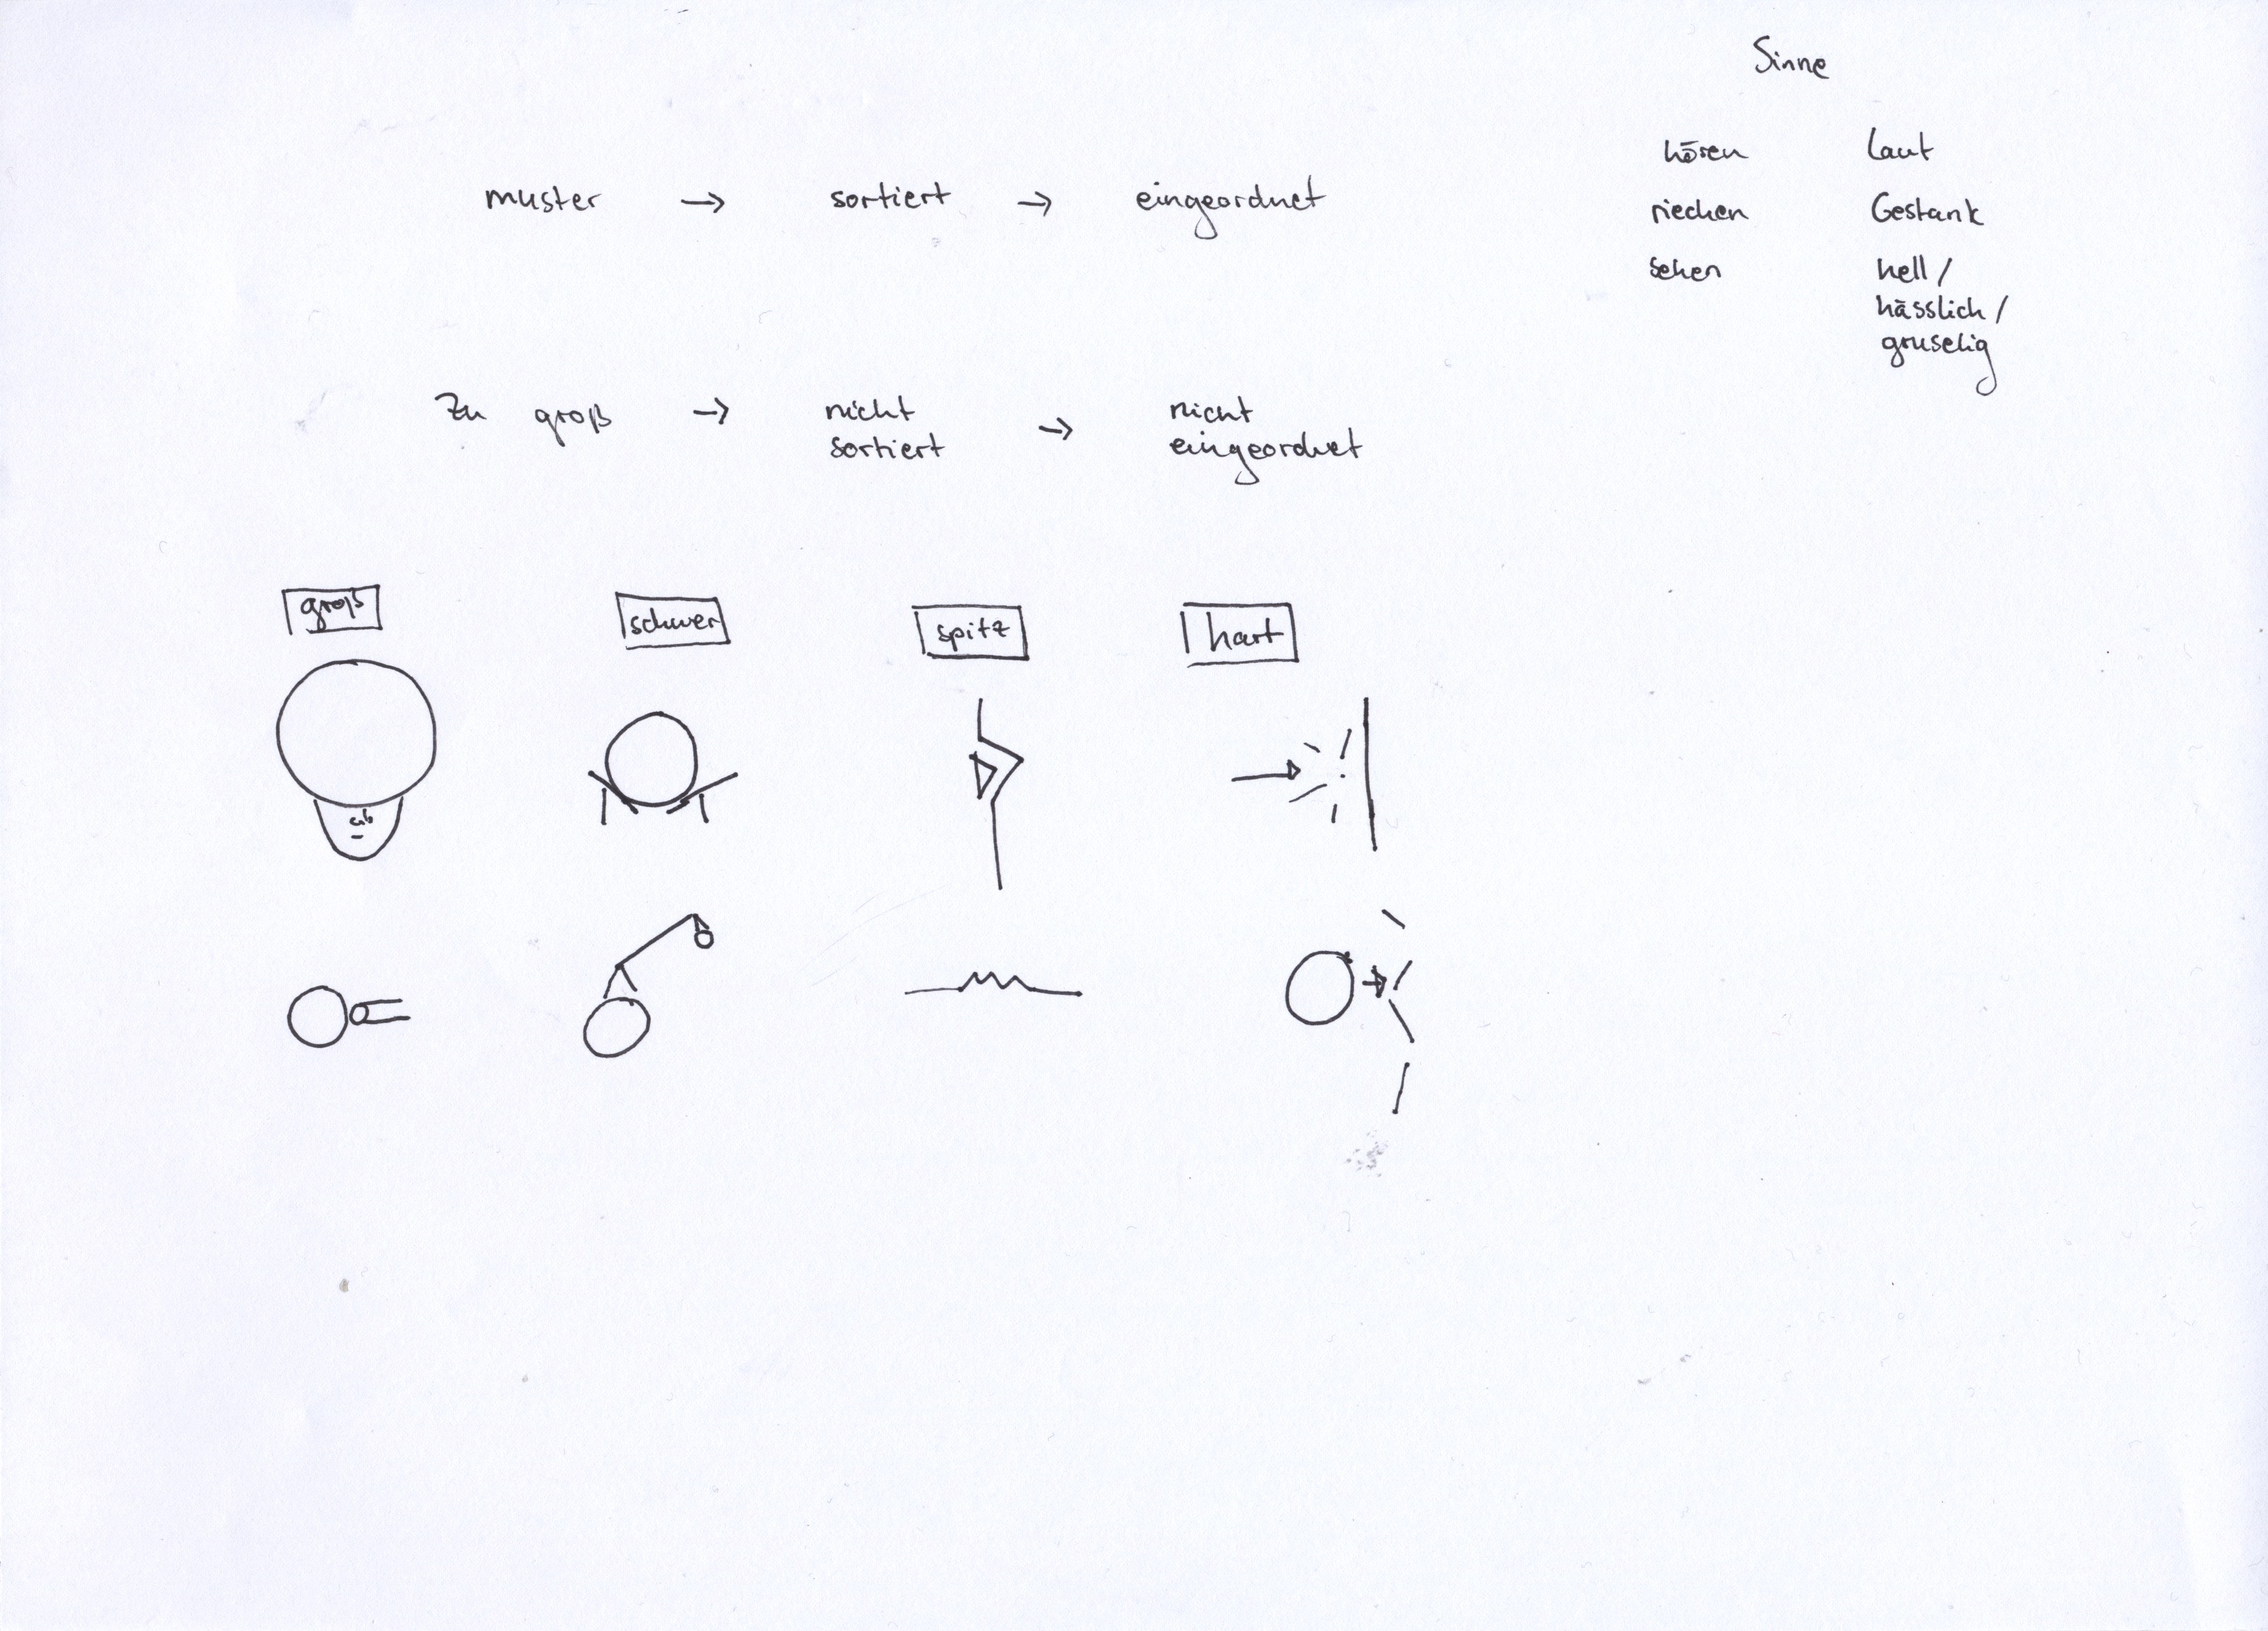 Sinne
hören Laut
riechen Gestank
sehen hell /
hässlich /
gruselig
muster → sortiert → eingeordnet
Zu groß → nicht sortiert → nicht eingeordnet
groß schwer spitz hart